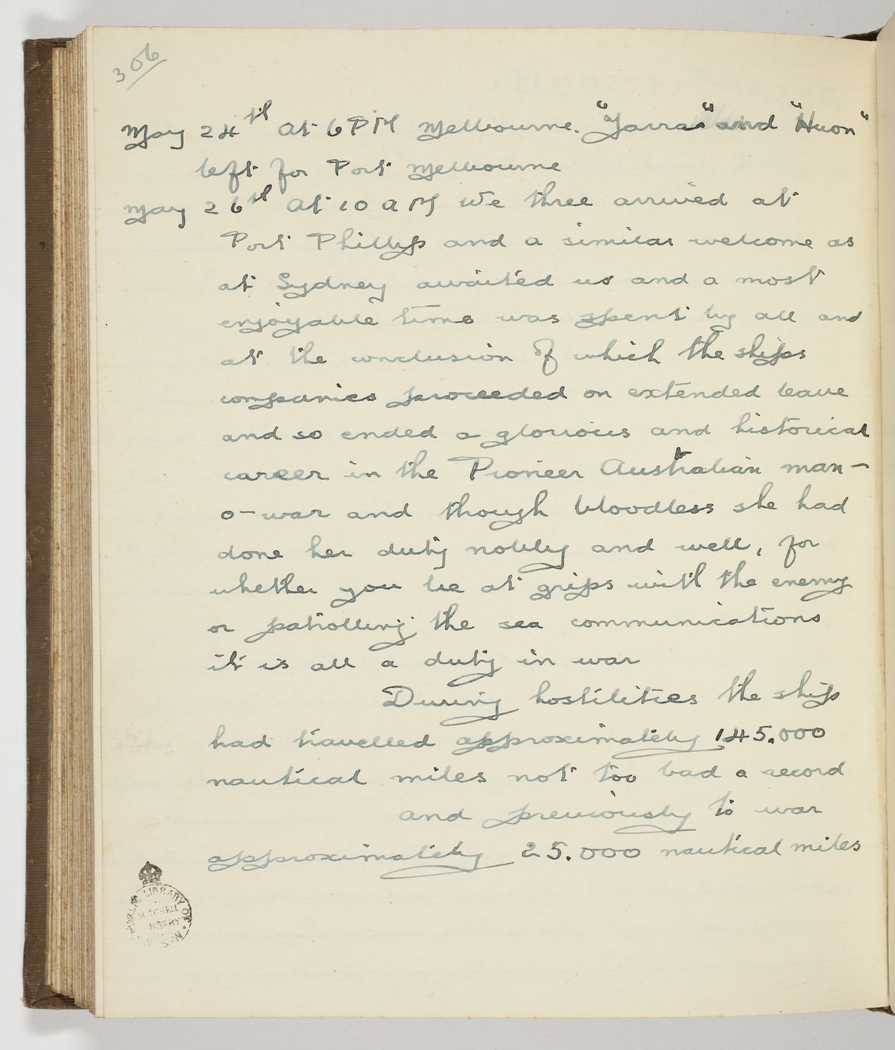 306
May 24th At 6 PM Melbourne. "Yarra" and "Huon"
left for Port Melbourne
May 26th At 10 AM We three arrived at
Port Phillip and a similar welcome as
at Sydney awaited us and a most
enjoyable time was spent by all and
at the conclusion of which the ships
companies proceeded on extended leave
and so ended a glorious and historical
career in the Pioneer Australian man-
o-war and though bloodless she had
done her duty nobley and well, for
whether you be at grips with the enemy
or patrolling the sea communications
it is all a duty in war
During hostilities the ship
had travelled approximately 145.000
nautical miles not too bad a record
and previously to war
approximately 25.000 nautical miles
PUBLIC LIBRARY OF N.S.W.
MITCHELL
LIBRARY